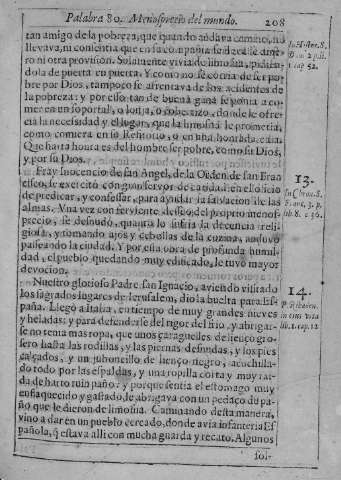 Palabra 80. Menosprecio del mundo. 208
tan amigo de la pobreza, que quando andava camino, no
llevava, ni consentia que en su compañia se llevasse dine-
ro ni otra provision. Solamente vivia de limosna, pidien-
dola de puerta en puerta. Y como no se corria de ser po-
bre por Dios, tampoco se afrentava de los acidentes de
la pobreza: y por esso tan de buena gana se ponia a co-
mer en un soportal, o lonja, o cobertizo, donde le ofre-
cia la necessidad y el lugar, que la limosna le prometia,
como comiera en su Refitorio, o en una honrada casa.
Que harta honra es del hombre ser pobre, como su Dios,
y por su Dios.
Fray Inocencio de san Angel, de la Orden de san Fran
cisco, se exercitò con gran fervor de caridad en el oficio
de predicar, y confessar, para ayudar la salvacion de las
almas. Una vez con ferviente desseo del proprio menos-
precio, se desnudò, quanto lo sufria la decencia reli-
giosa, y tomando ajos y cebollas de la cozina, anduvo
passeando la ciudad. Y por esta obra de profunda humil
dad, el pueblo quedando muy edificado, le tuvo mayor
devocion.
Nuestro glorioso Padre san Ignacio, aviendo visitado
los sagrados lugares de Ierusalem, dio la buelta para Es-
paña. Llegò a Italia, en tiempo de muy grandes nieves
y heladas: y para defenderse del rigor del frio, y abrigar-
se no tenia mas ropa, que unos çaraguelles de lienço gro-
sero hasta las rodillas, y las piernas desnudas, y los pies
calçados, y un juboncillo de lienço negro, acuchilla-
do todo por las espaldas, y una ropilla corta y muy rai-
da de harto ruin paño: y porque sentia el estomago muy
enflaquecido y gastado, se abrigava con un pedaço de pa-
ño que le dieron de limosna. Caminando desta manera,
vino a dar en un pueblo cercado, donde avia infanteria Es
pañola, q̃ estava alli con mucha guarda y recato. Algunos
sol-
13.
14.